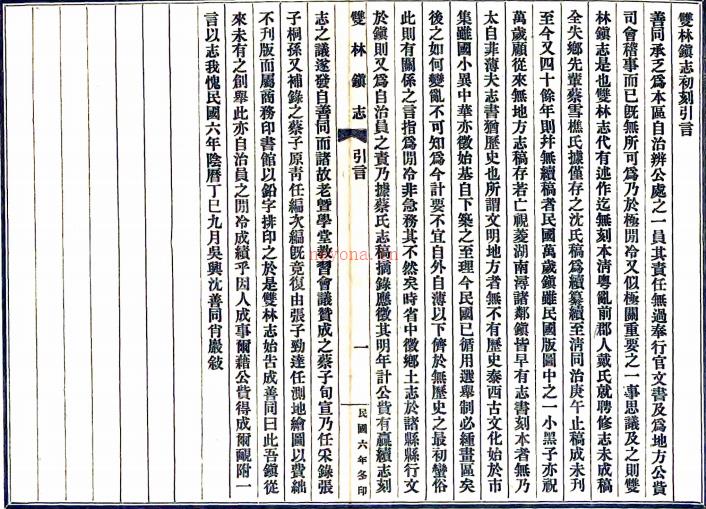 雙林鎮志初刻引言
善同承乏爲本區自治辦公處之一員其責任無過奉行官文書及爲地方公費
司會稽事而已旣無所可爲乃於極閒冷又似極關重要之一事思議及之則雙
林鎮志是也雙林志代有述作迄無刻本淸粵亂前郡人戴氏就聘修志未成稿
全失鄉先輩蔡雪樵氏據僅存之沈氏稿爲續纂續至淸同治庚午止稿成未刊
至今又四十餘年則幷無續稿者民國萬歲鎮雖民國版圖中之一小黑子亦祝
萬歲顧從來無地方志稿存若亡視菱湖南潯諸鄰鎮皆早有志書刻本者無乃
太自菲薄夫志書猶歷史也所謂文明地方者無不有歷史泰西古文化始於市
集雖國小異中華亦徵始基自下築之至理今民國已循用選舉制必種畫區矣
後之如何變亂不可知爲今計要不宜自外自薄以下儕於無歷史之最初蠻俗
此則有關係之言指爲閒冷非急務其不然矣時省中徵鄉土志於諸縣縣行文
於鎮則又爲自治員之責乃據蔡氏志稿摘錄應徵其明年計公費有贏續志刻
雙林鎮志
引言
一
民國六年冬印
志之議遂發自善同而諸故老曁學堂敎習會議贊成之蔡子旬宣乃任采錄張
子桐孫又補錄之蔡子原靑任編次編旣竟復由張子勁達任測地繪圖以費絀
不刊版而屬商務印書館以鉛字排印之於是雙林志始告成善同曰此吾鎮從
來未有之創舉此亦自治員之閒冷成績乎因人成事爾藉公費得成爾覼附一
言以志我愧民國六年陰曆丁巳九月吳興沈善同肖巖敍
nayona.com